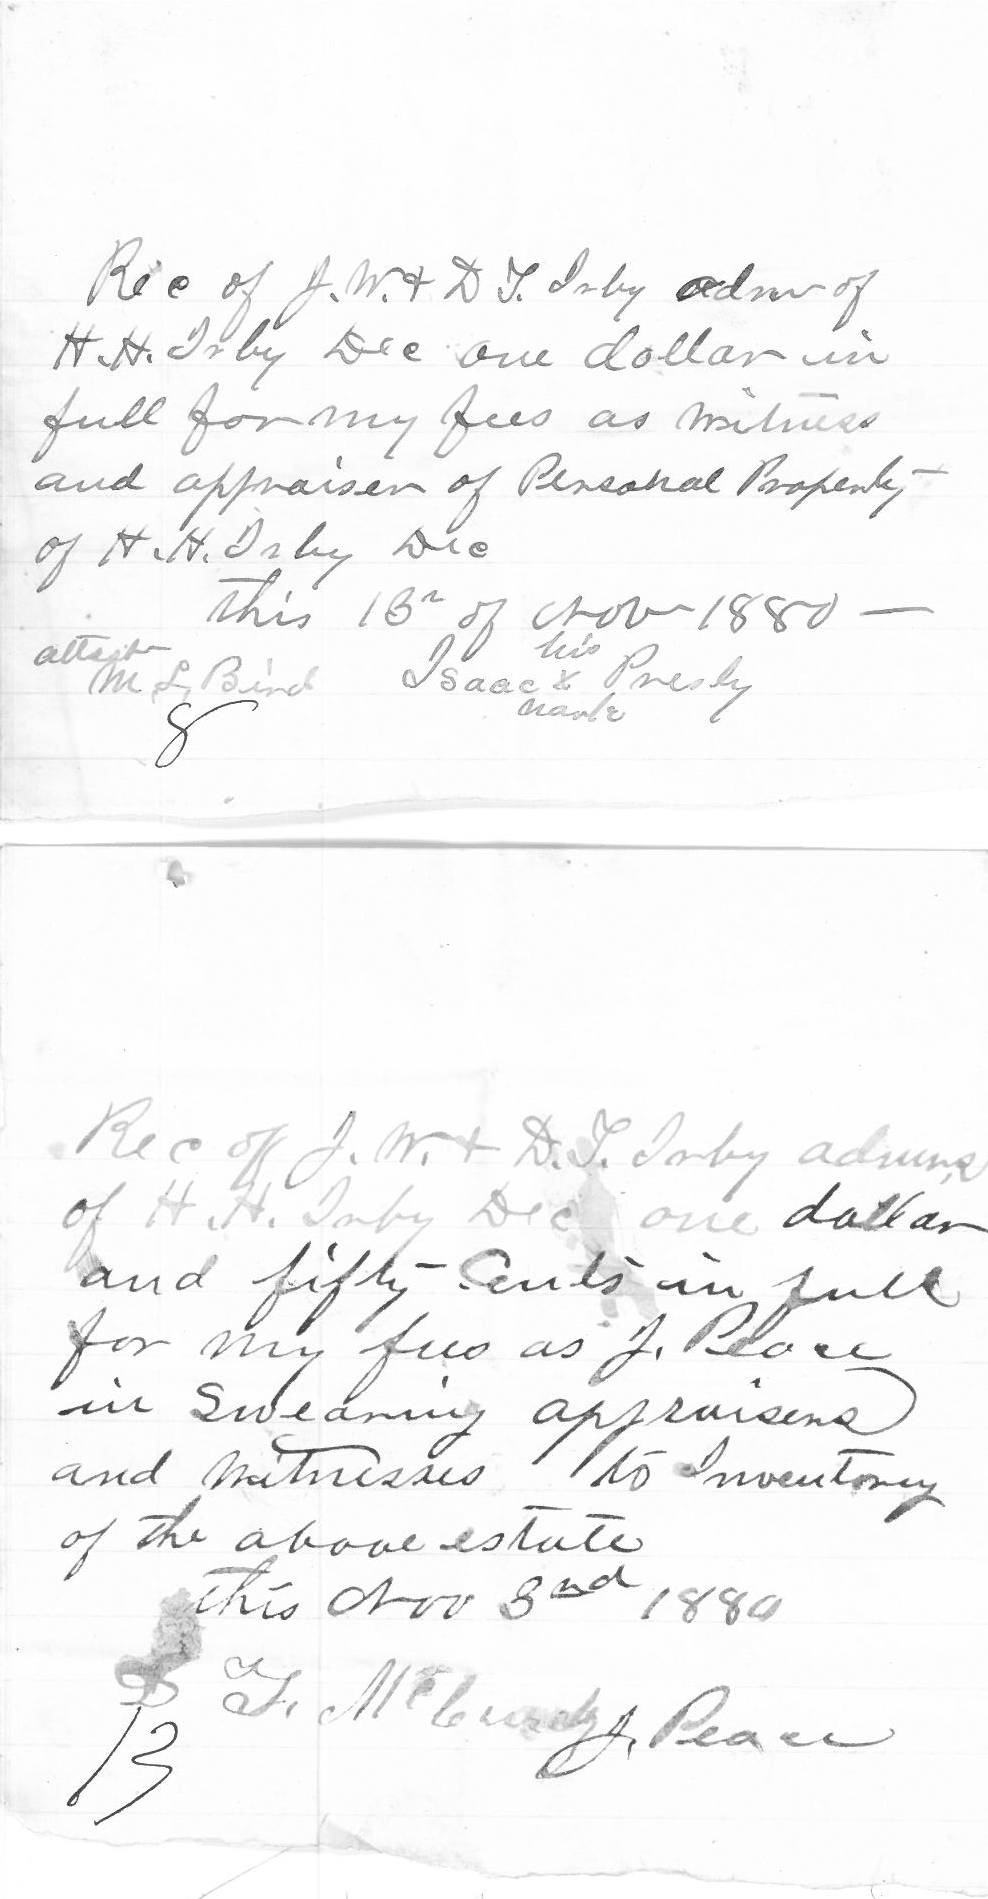 Rec of J. W. & D T. Irby admr of
H. H. Irby Dec one dollar in
full for my fees as witness
and appraiser of Personal Property
of H. H. Irby Dec
this 13 of Nov 1880 —
attest his
M. L. Bird Isaac x Presly
mark
8
Rec of J. W. & D. T. Irby admrs
of H. H. Irby Dec one dollar
and fifty Cents in full
for my fees as J. Peace
in Swearing appraisers
and witnesses to Inventory
of the above estate
this Nov 3nd 1880
T. McCurdy J. Peace
13